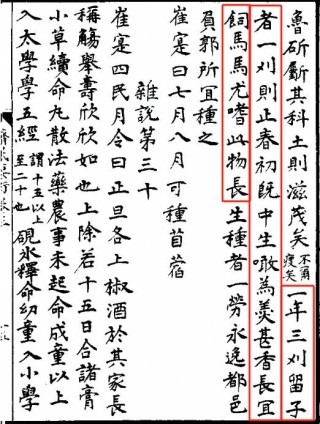 魯斫劚其科土則滋茂矣不爾瘦矣一年三刈留子
者一刈則止春初既中生噉為羹甚香長宜
飼馬馬尤嗜此物長生種者一勞永逸都邑
負郭所宜種之
崔寔曰七月八月可種苜蓿
雜說第三十
崔寔四民月令曰正旦各上椒酒於其家長
稱觴舉壽欣欣如也上除若十五日合諸膏
小草續命丸散法藥農事未起命成童以上
入太學學五經謂十五以上至二十也硯冰釋命幼童入小學